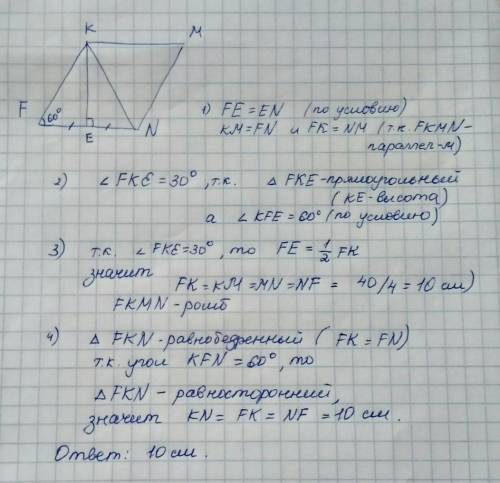 K
M
F
60°
E
N
1) FE = EN (по условию)
KM = FN и FK = NM (т.к. FKMN -
параллел-м)
2) ∠ FKE = 30°, т.к. △ FKE - прямоугольный
(KE - высота)
а ∠ KFE = 60° (по условию)
3) т.к. ∠ FKE = 30°, то FE = 1/2 FK
значит
FK = KM = MN = NF = 40/4 = 10 см)
FKMN - ромб
4) △ FKN - равнобедренный ( FK = FN)
т.к. угол KFN = 60°, то
△ FKN - равносторонний,
значит KN = FK = NF = 10 см.
Ответ: 10 см.